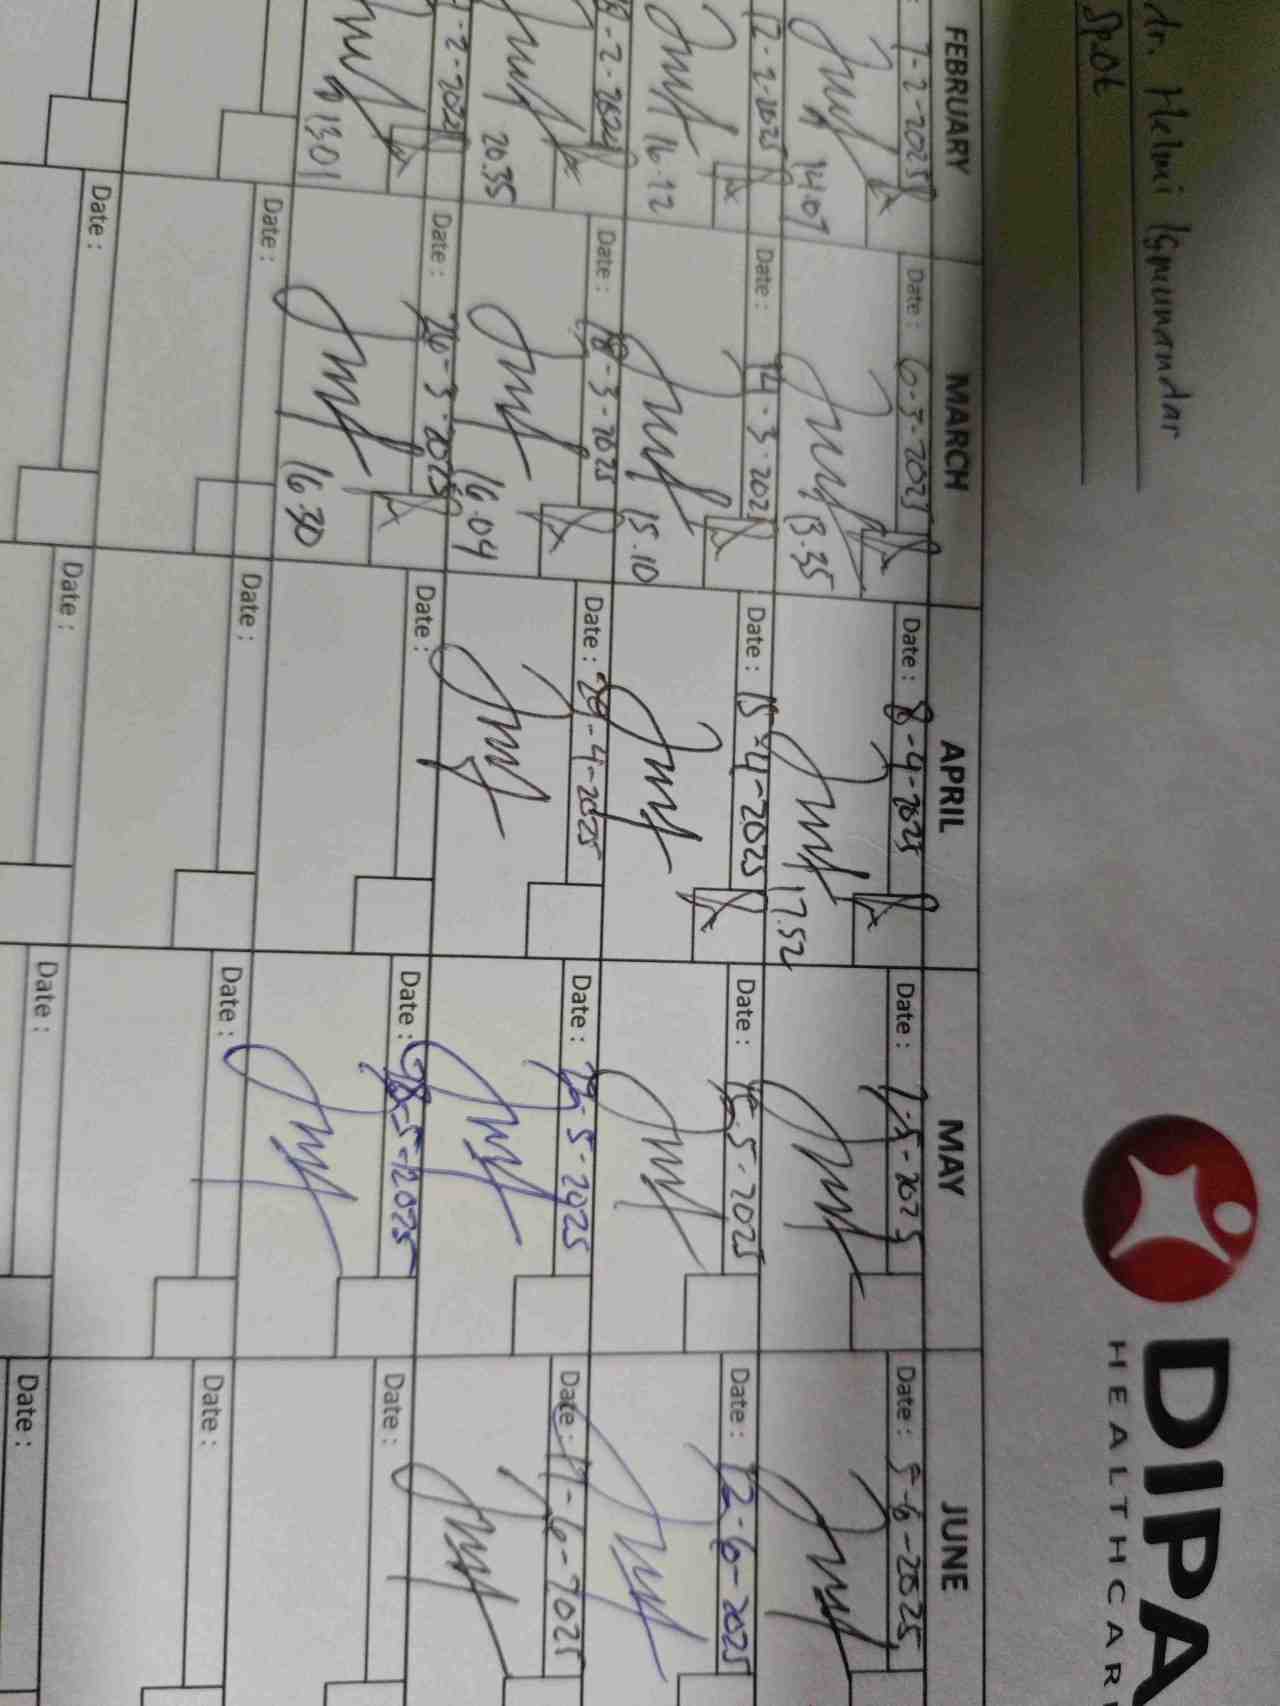 DIPA
HEALTHCAR
dr. Helmi Ismunandar
SpOt
FEBRUARY MARCH APRIL MAY JUNE
7-2-2025 Date: 6-3-2025 Date: 8-4-2025 Date: 7-5-2025 Date: 5-6-2025
14.07 13.35 17.52
12-2-2025 Date: 14-3-202 Date: 15-4-2025 Date: 15-5-2025 Date: 12-6-2025
16.12 15.10
-2-202 Date: 18-3-2025 Date: 29-4-2025 Date: -5-2025 Date: 17-6-2025
20.35 16.04
-2-202 Date: 26-3-2025 Date: Date: 28-5-2025 Date:
13.01 16.30
Date: Date: Date: Date:
Date: Date: Date: Date: